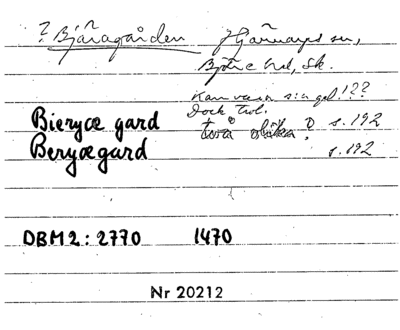 ? Bjäragården Hjärnarps sn,
Bjäre hd, Sk.
Kan vara s:a gd!??
Dock tvl.
Bieryæ gard två olika? s. 192
Beryægard s. 192
DBM2: 2770 1470
Nr 20212